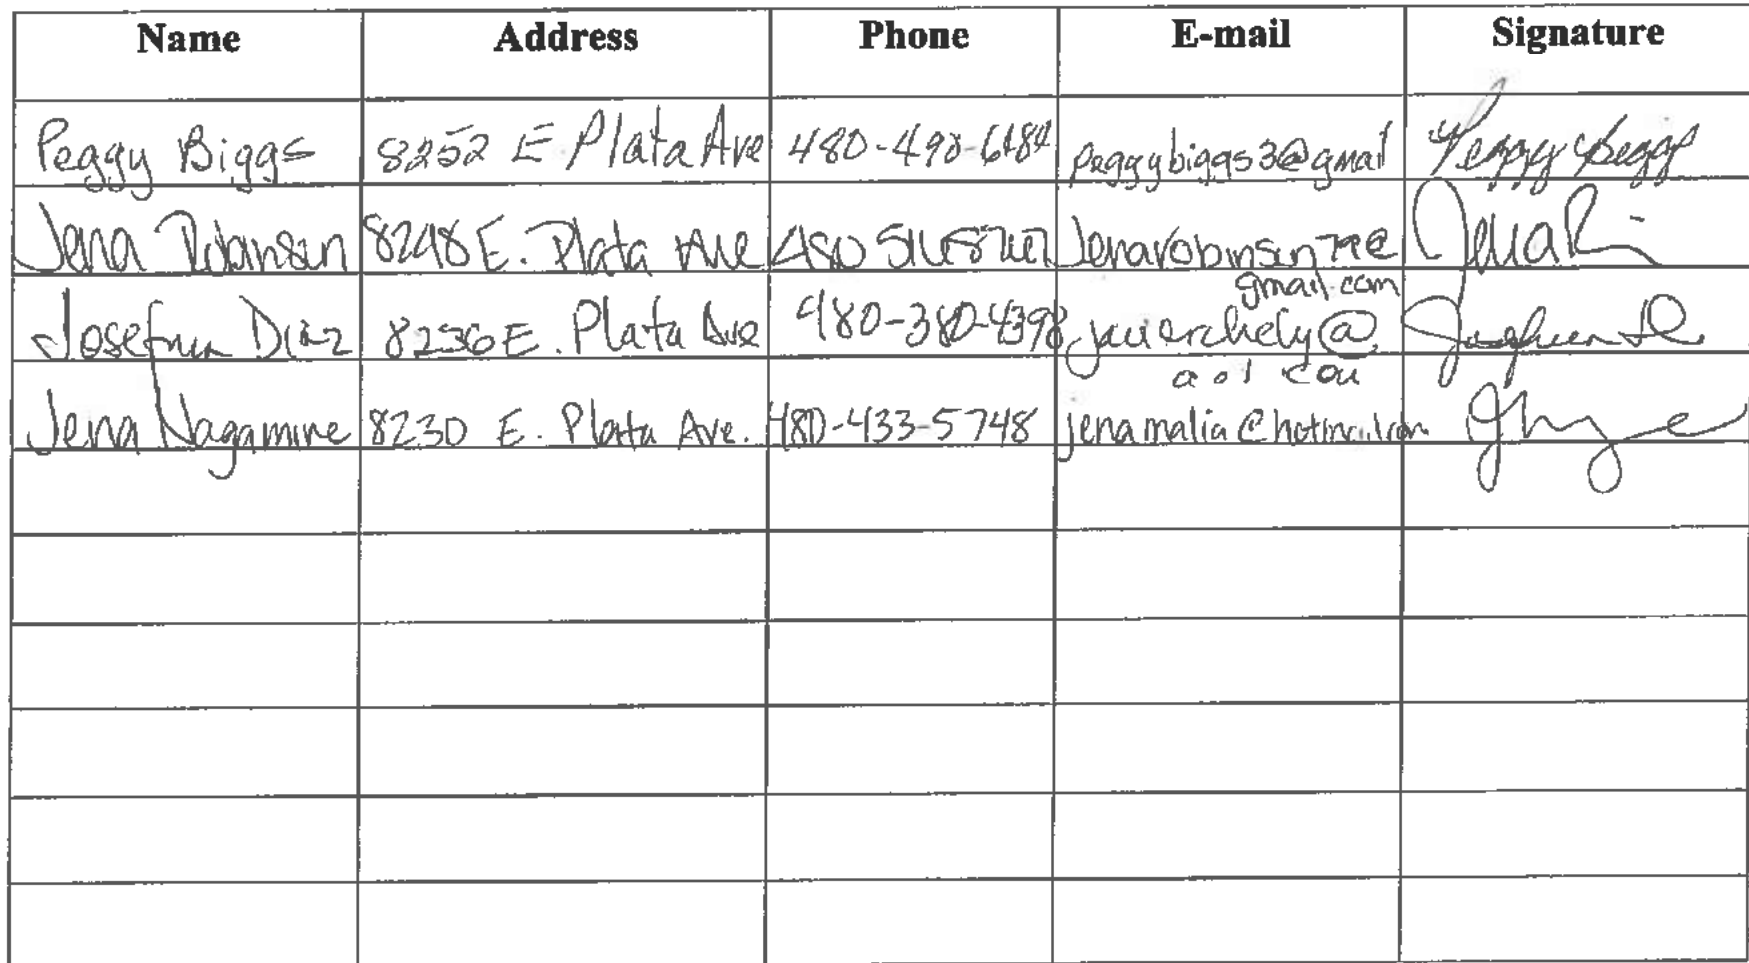 Name Address Phone E-mail Signature
Peggy Biggs 8252 E Plata Ave 480-490-6484 peggybiggs3@gmail Peggy Biggs
Jena Robinson 8248 E. Plata Ave 480 Jenarobinson79@
gmail.com
Josefina Diaz 8236 E. Plata Ave 480-380-4398 javierchely@
aol com
Jena Nagamine 8230 E. Plata Ave. 480-433-5748 jenamalia@hotmail.com